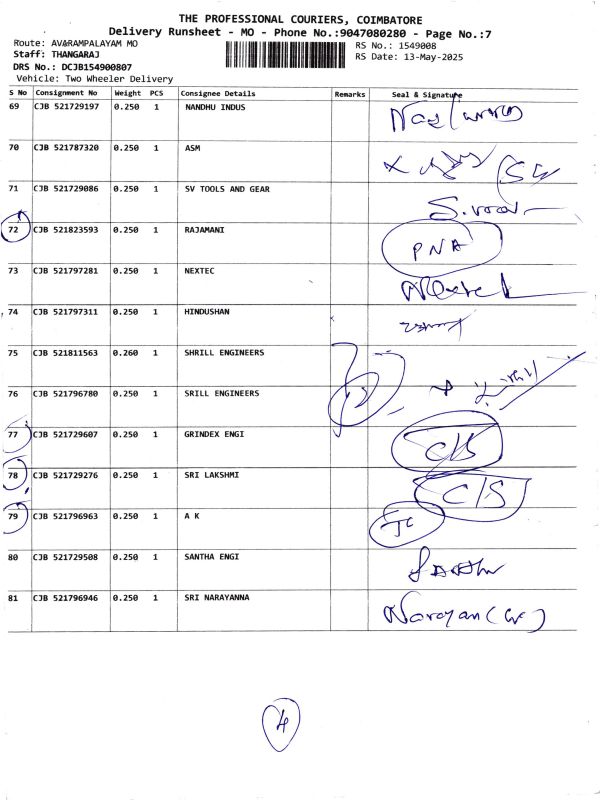 THE PROFESSIONAL COURIERS, COIMBATORE
Delivery Runsheet - MO - Phone No.:9047080280 - Page No.:7
Route: AV&RAMPALAYAM MO
RS No.: 1549008
Staff: THANGARAJ
RS Date: 13-May-2025
DRS No.: DCJB154900807
Vehicle: Two Wheeler Delivery
S No Consignment No Weight PCS Consignee Details Remarks Seal & Signature
69 CJB 521729197 0.250 1 NANDHU INDUS
70 CJB 521787320 0.250 1 ASM
71 CJB 521729086 0.250 1 SV TOOLS AND GEAR
72 CJB 521823593 0.250 1 RAJAMANI PNA
73 CJB 521797281 0.250 1 NEXTEC
74 CJB 521797311 0.250 1 HINDUSHAN
75 CJB 521811563 0.260 1 SHRILL ENGINEERS
76 CJB 521796780 0.250 1 SRILL ENGINEERS
77 CJB 521729607 0.250 1 GRINDEX ENGI C/S
78 CJB 521729276 0.250 1 SRI LAKSHMI C/S
79 CJB 521796963 0.250 1 A K
80 CJB 521729508 0.250 1 SANTHA ENGI
81 CJB 521796946 0.250 1 SRI NARAYANNA Narayan
4